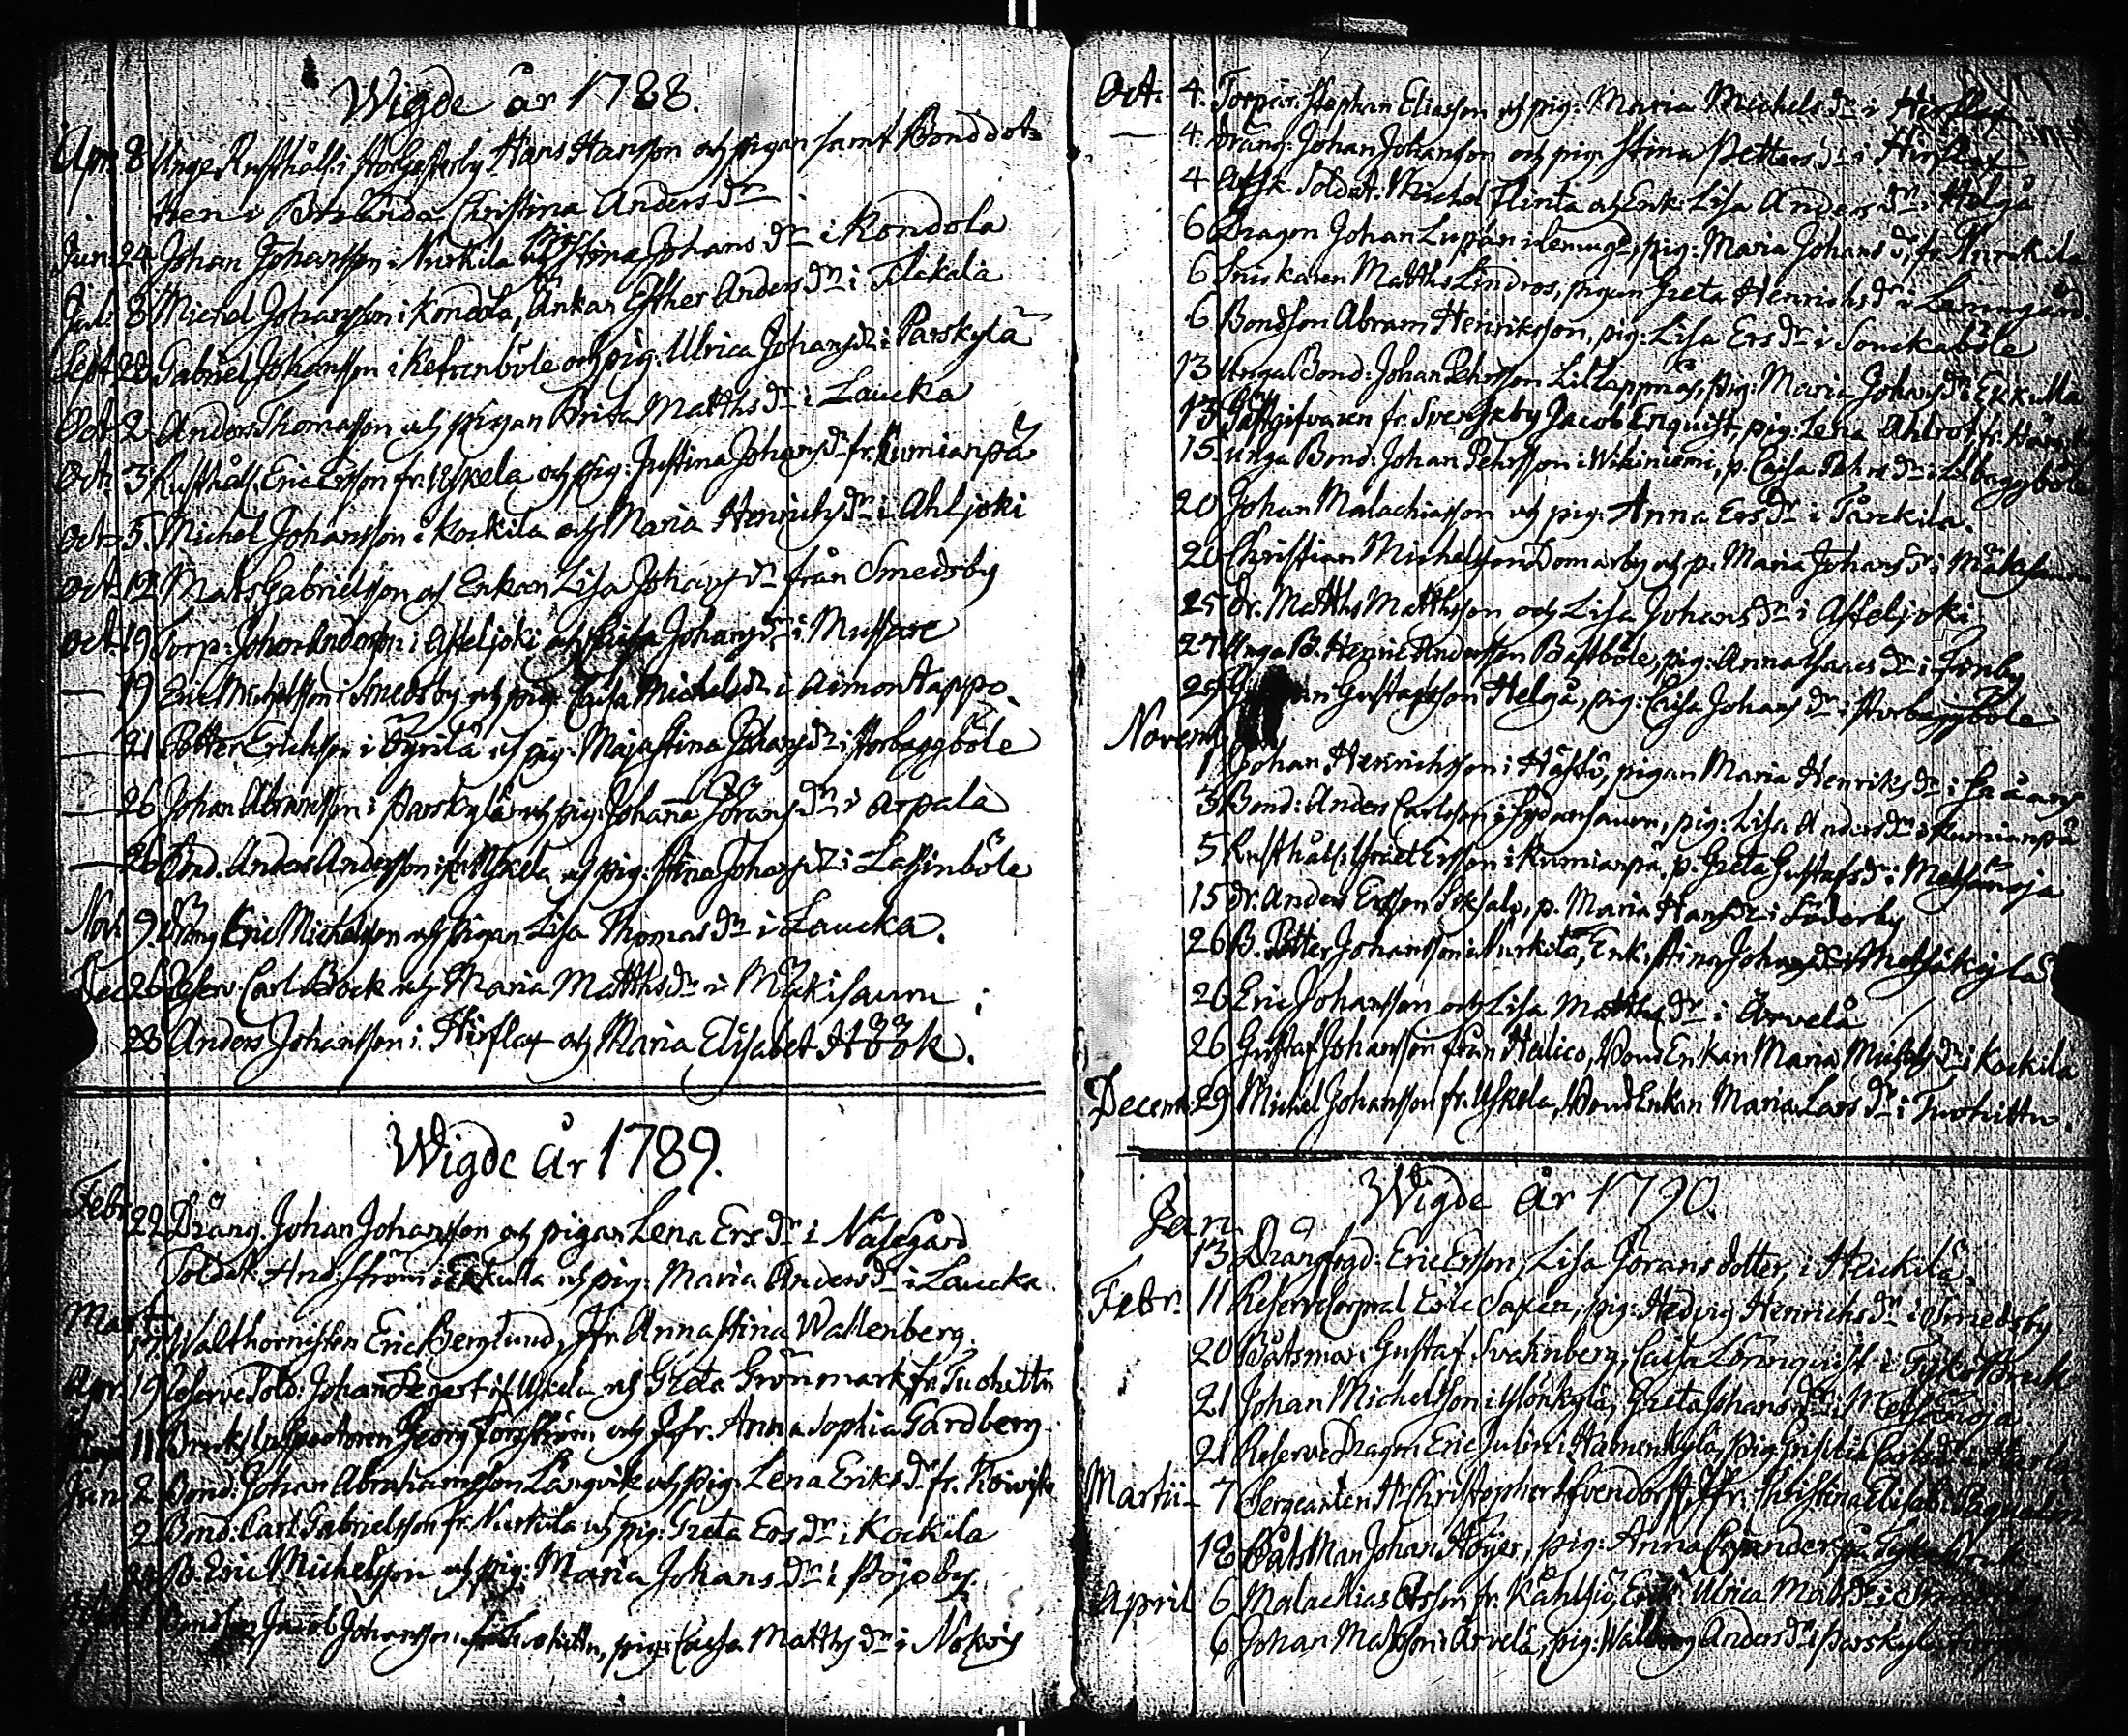 Wigde år 1788.
Apr. 8 Unge Rusthåll: i Storgesterby Hans Hansson och pigan samt Bonddot=
tren i Christina Anders dr
Jun. 24 Johan Johansson i Nurkila och Stina Johans dr i Kondola
Juli 8 Michel Johansson i Kondola, Änkan Esther Anders dr i Tilakala
Sept. 28 Gabriel Johansson i Ketrinböle och pig. Ulrica Johans dr i Parskylä
Oct. 2 Anders Thomasson och pigan Brita Matths dr i Laucka
Oct. 3 Rusthåll. Eric Ersson fr. Uskela och pig: Justina Johans dr fr. Rumianpä
Oct. 5. Michel Johansson i Kockila och Maria Henrichs dr i Ahljoki
Oct. 12 Mats Gabrielsson och Enkan Lisa Johans dr från Smedsby
Oct. 19 Torp: Johan Andersson i Asteljoki och Johans dr i Mussare
— 19 Eric Michelsson i Smedsby och pig: Caisa Michels dr i Aimontappo.
— 21 Petter Erichsson i Öyrilä och pig: Maja Stina Johans dr i Storbaggböle
— 26 Johan Abramsson i Parskylä och pig: Johanna Jörans dr i Arpala
— 26 Bond. Anders Andersson i Uskela och pig: Stina Johans dr i Lassinböle
Nov. 9. Dräng Eric Michelsson och pigan Lisa Thomas dr i Laucka.
Dec. 26 Reserv. Carl Bock och Maria Matths dr i Mäkisauru
28 Anders Johansson i Hirslax och Maria Elisabet Höök.
Wigde år 1789.
Febr. 22 Dräng. Johan Johansson och pigan Lena Ers dr i Näsegård
Soldat. And: Ström i Ekkulla och pig: Maria Anders dr i Laucka
Mart. 17. Walthornisten Eric Berglund, Jfr Anna Stina Wallenberg.
Apr. 19 Reserve Sold: Johan Segast i Uskela och Greta Grönmark fr. Tuohittu
11 Bruks Inspectoren Georg Forsström och Jfr. Anna Sophia Gardberg.
Jan. 2 Bond: Johan Abrahamsson Långvik och pig. Lena Eriks dr fr.
2 Bond: Carl Gabrielsson fr. Nurkila och pig: Greta Ers dr i Kockila
B. Eric Michelsson och pig: Maria Johans dr i Pojoby.
Bondson Jacob Johansson, pig: Caisa Matths dr i Nokois
Oct. 4. Torpar. Stephan Eliasson och pig: Maria Michels dr i Hirslax
— 4. dräng: Johan Johansson och pig. Stina Petters dr i Hirslax
4 Afsk. Soldat: Michel Flinta och Enk. Lisa Anders dr i Helgå
6 Dragon Johan Lupán i Lemngd, pig: Maria Johans dr fr. Nurckila
6 Matths Lindros, pigan Greta Henrichs dr i Lemngård
6 Bondson Abram Henriksson, pig: Lisa Ers dr i Sonckaböle
13 Unga Bond: Johan Pehrsson Lillappnäs, pig: Maria Johans dr Ekkulla
13 Gästgifvaren fr. Svensksby Jacob Enquist, pig: Lena Ahlrot fr.
15 unga Bond: Johan Pehrsson i Wikiniemi, p. Caisa Pehrs dr i Lillbaggböle
20 Johan Malachiasson och pig: Anna Ers dr i Parckila.
20 Christian Michelsson Domarby och p. Maria Johans dr i Mäkisauru
25 Dr. Matths Matthsson och Lisa Johans dr i Asteljoki
27 Unga B. Henric Andersson Bastböle, pig: Anna Isacs dr i Finby
29 Gustafsson Helgå, pig: Caisa Johans dr i Storbaggböle
Novemb. 1 Johan Henrichsson i Hästö, pigan Maria Henriks dr i
3 Bond: Anders Carlsson i Sydänsauru, pig: Lisa Anders dr i Rumianpä
5 Rusthåll: Israel Ersson i Rumianpä, p. Greta Gustafs dr i Metsänoja
15 dr. Anders Ersson Soksalo, p. Maria Hans dr i Söderby
26 B. Petter Johansson i Nurkila, Enk. Stina Johans dr i Metsäkylä
26 Eric Johansson och Lisa Matths dr i Ärvelä
26 Gustaf Johansson från Heilico, Bond Enkan Maria Michels dr i Kockila
Decemb. 29 Michel Johansson fr. Uskela, Bond Enkan Maria Lars dr i Tuohittu.
Wigde år 1790.
Jan. 13 Drängfogd: Eric Ersson, Lisa Jörans dotter, i Heickilä.
Febr. 11 Reserve Corpral Eric Saxen, pig: Hedvig Henrichs dr i Smedsby
20 Båtsman: Gustaf Svahnberg, Caisa Lönnquist i Tykö Bruk
21 Johan Michelsson i Isonkylä, Greta Johans dr i Metsänoja
21 Reserve Dragon Eric Julin i Hämenkylä, pig: Carls dr i Karla
Martii 7 Sergeanten Hr. Christopher Levendorff, Jfr. Christina Elisab.
18 Båtsman Johan Höijer, pig: Anna Cajander på Tykö Bruk.
April 6 Malachias Ersson fr. Kåhlsiö, Enk. Ulrica Mats dr i Smedsby
6 Johan Matsson i Ärvelä, pig: Walborg Anders dr i Parskylä